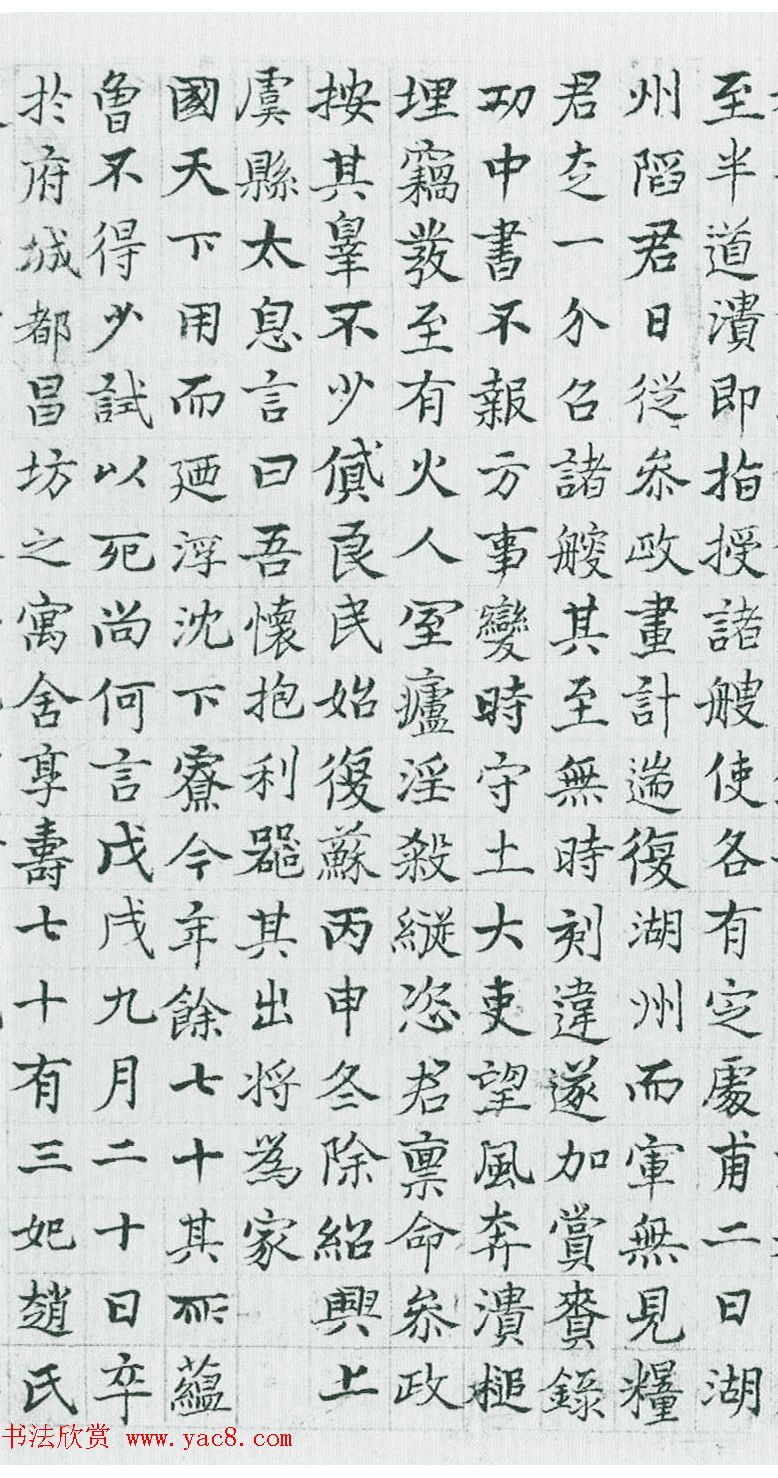 至半道潰即指授諸艘使各有定處甫二日湖
州䧟君日從叅政畫計耑復湖州而軍無見糧
君立一介召諸艘其至無時刻違遂加賞賚錄
功中書不報方事變時守土大吏望風奔潰槌
埋竊發至有火人室廬淫殺縱恣君禀命叅政
按其辠不少貸良民始復蘇丙申冬除紹興上
虞縣太息言曰吾懷抱利器其出將為家
國天下用而廼浮沈下寮今年餘七十其所蘊
曾不得少試以死尚何言戊戌九月二十日卒
於府城都昌坊之寓舍享壽七十有三妃趙氏
书法欣赏 www.yac8.com